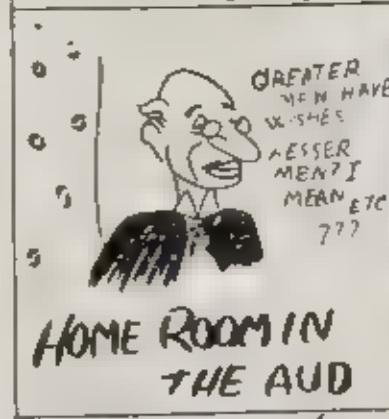 GREATER
MEN HAVE
WISHES
LESSER
MEN? I
MEAN ETC
???
HOME ROOM IN
THE AUD